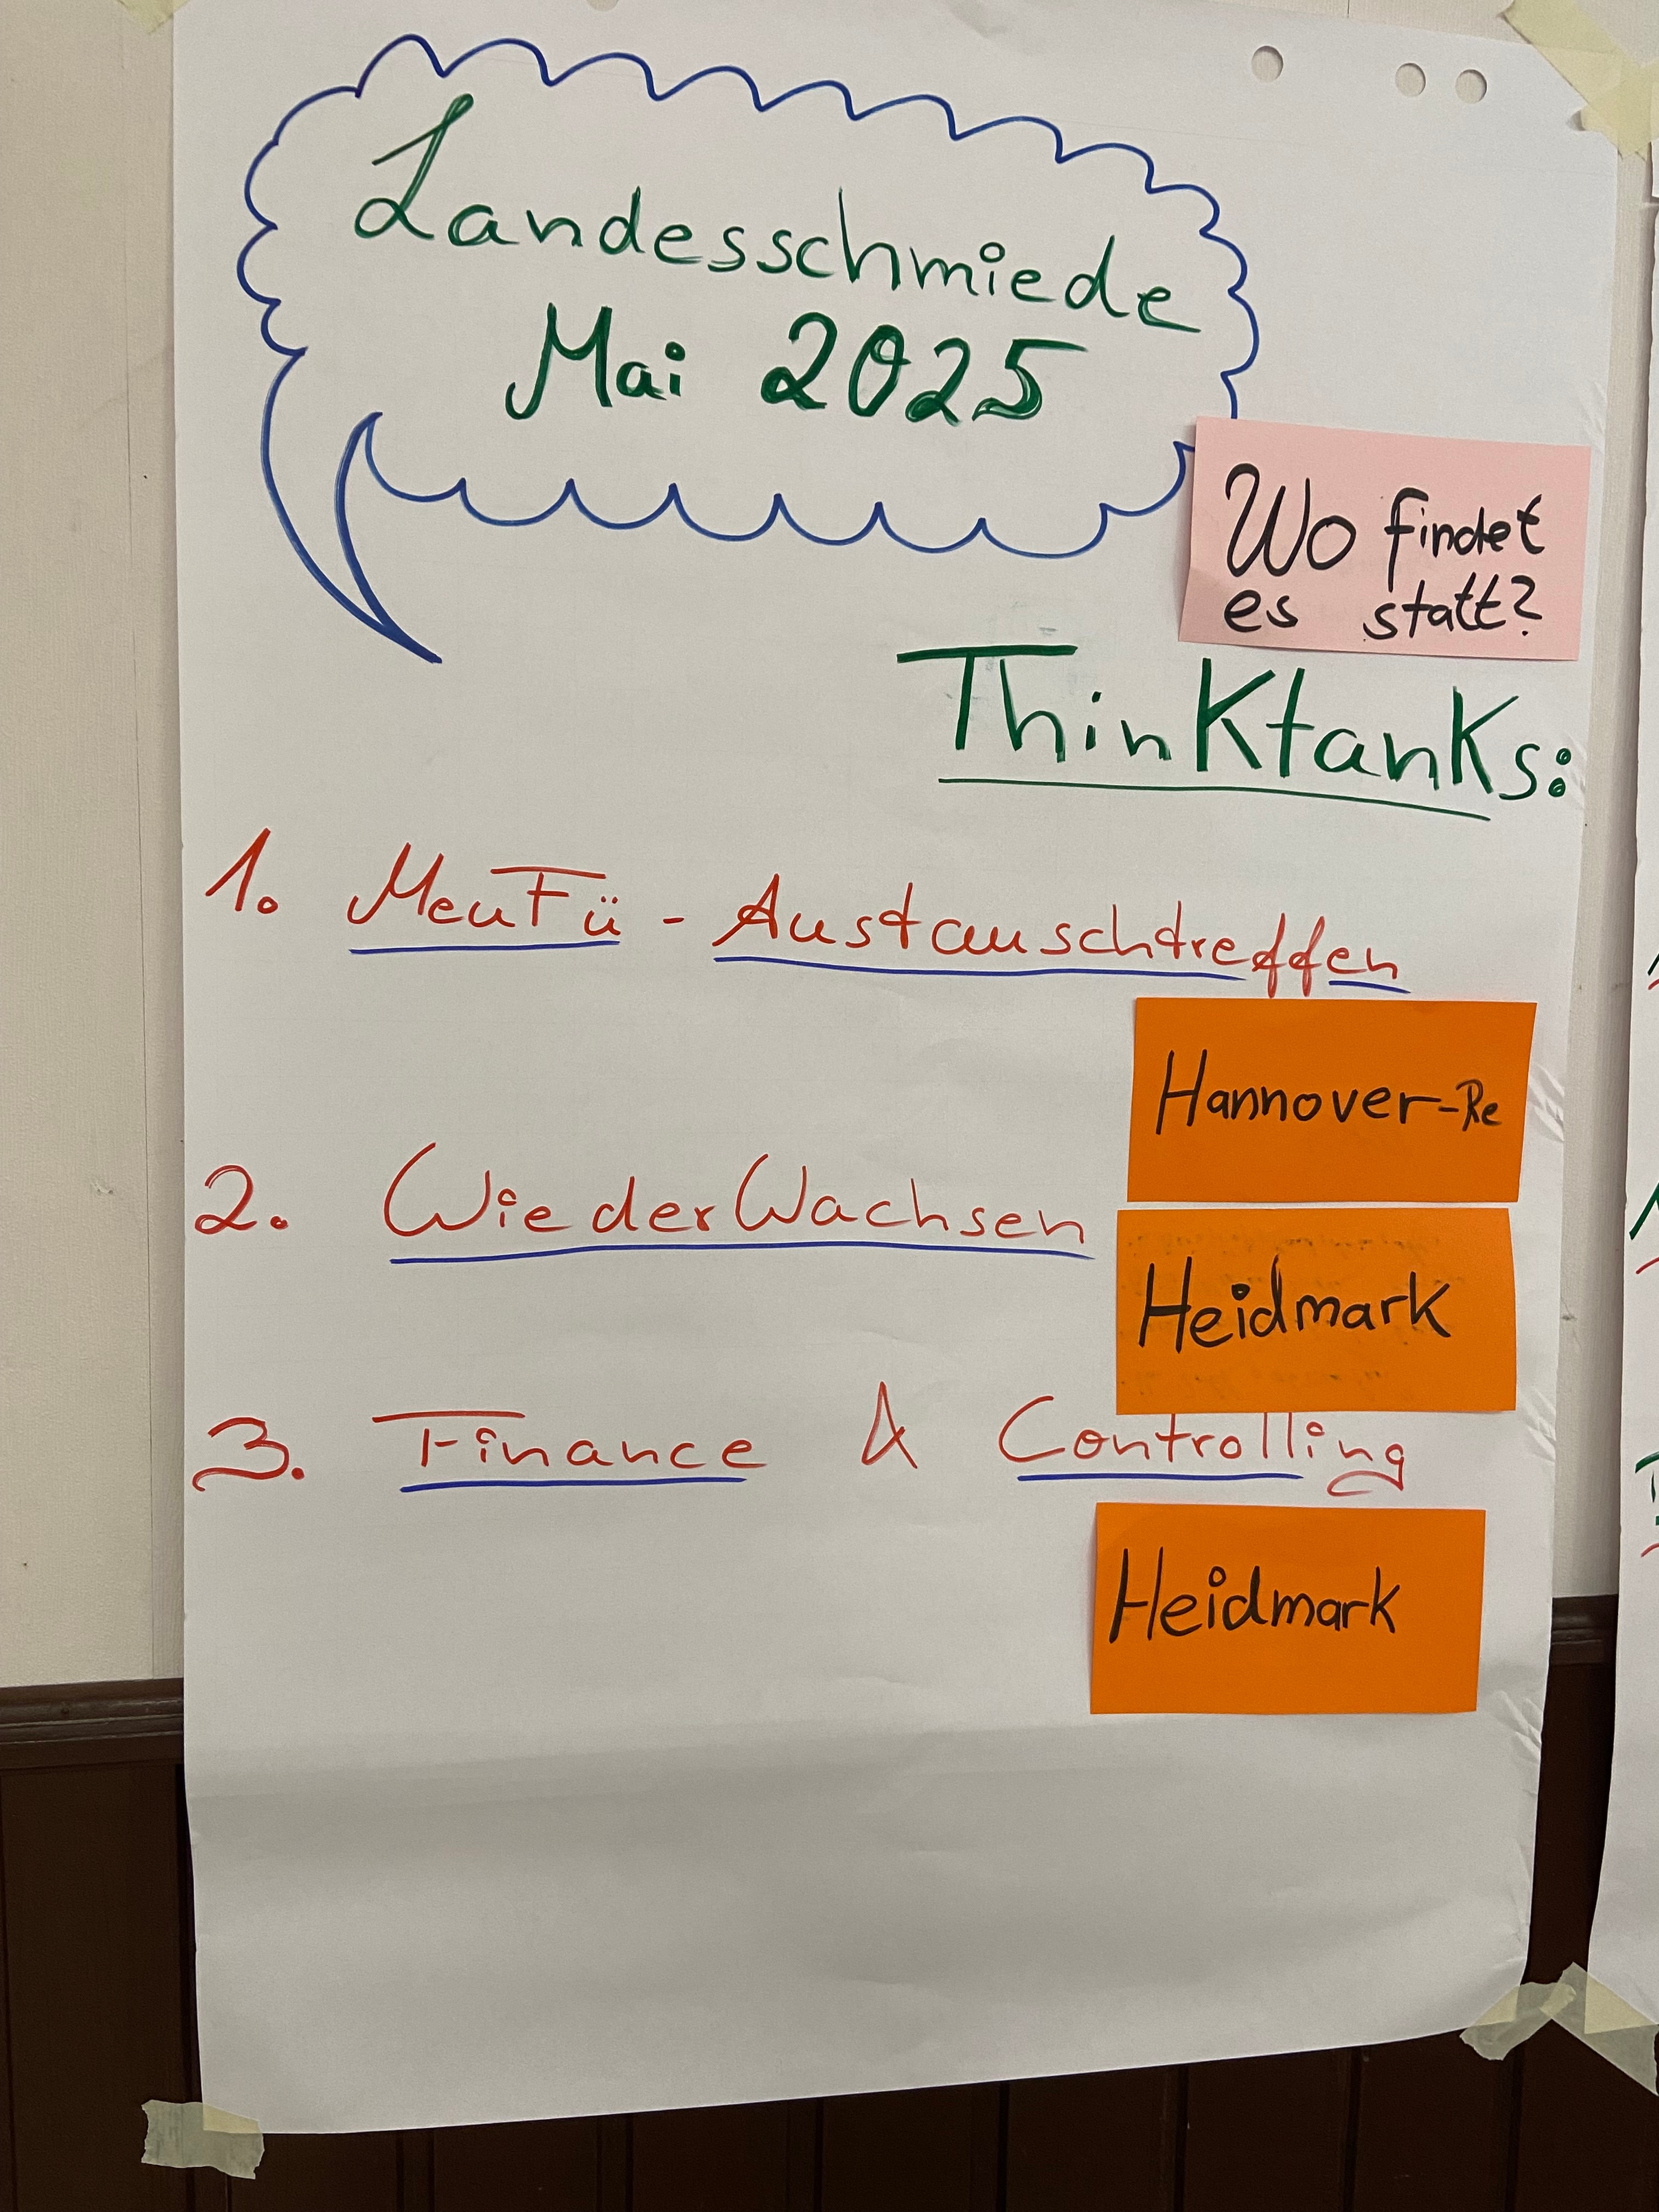 Landesschmiede
Mai 2025
Wo findet
es statt?
Thinktanks:
1. MeuFü - Austauschtreffen
Hannover-Re
2. WiederWachsen
Heidmark
3. Finance & Controlling
Heidmark